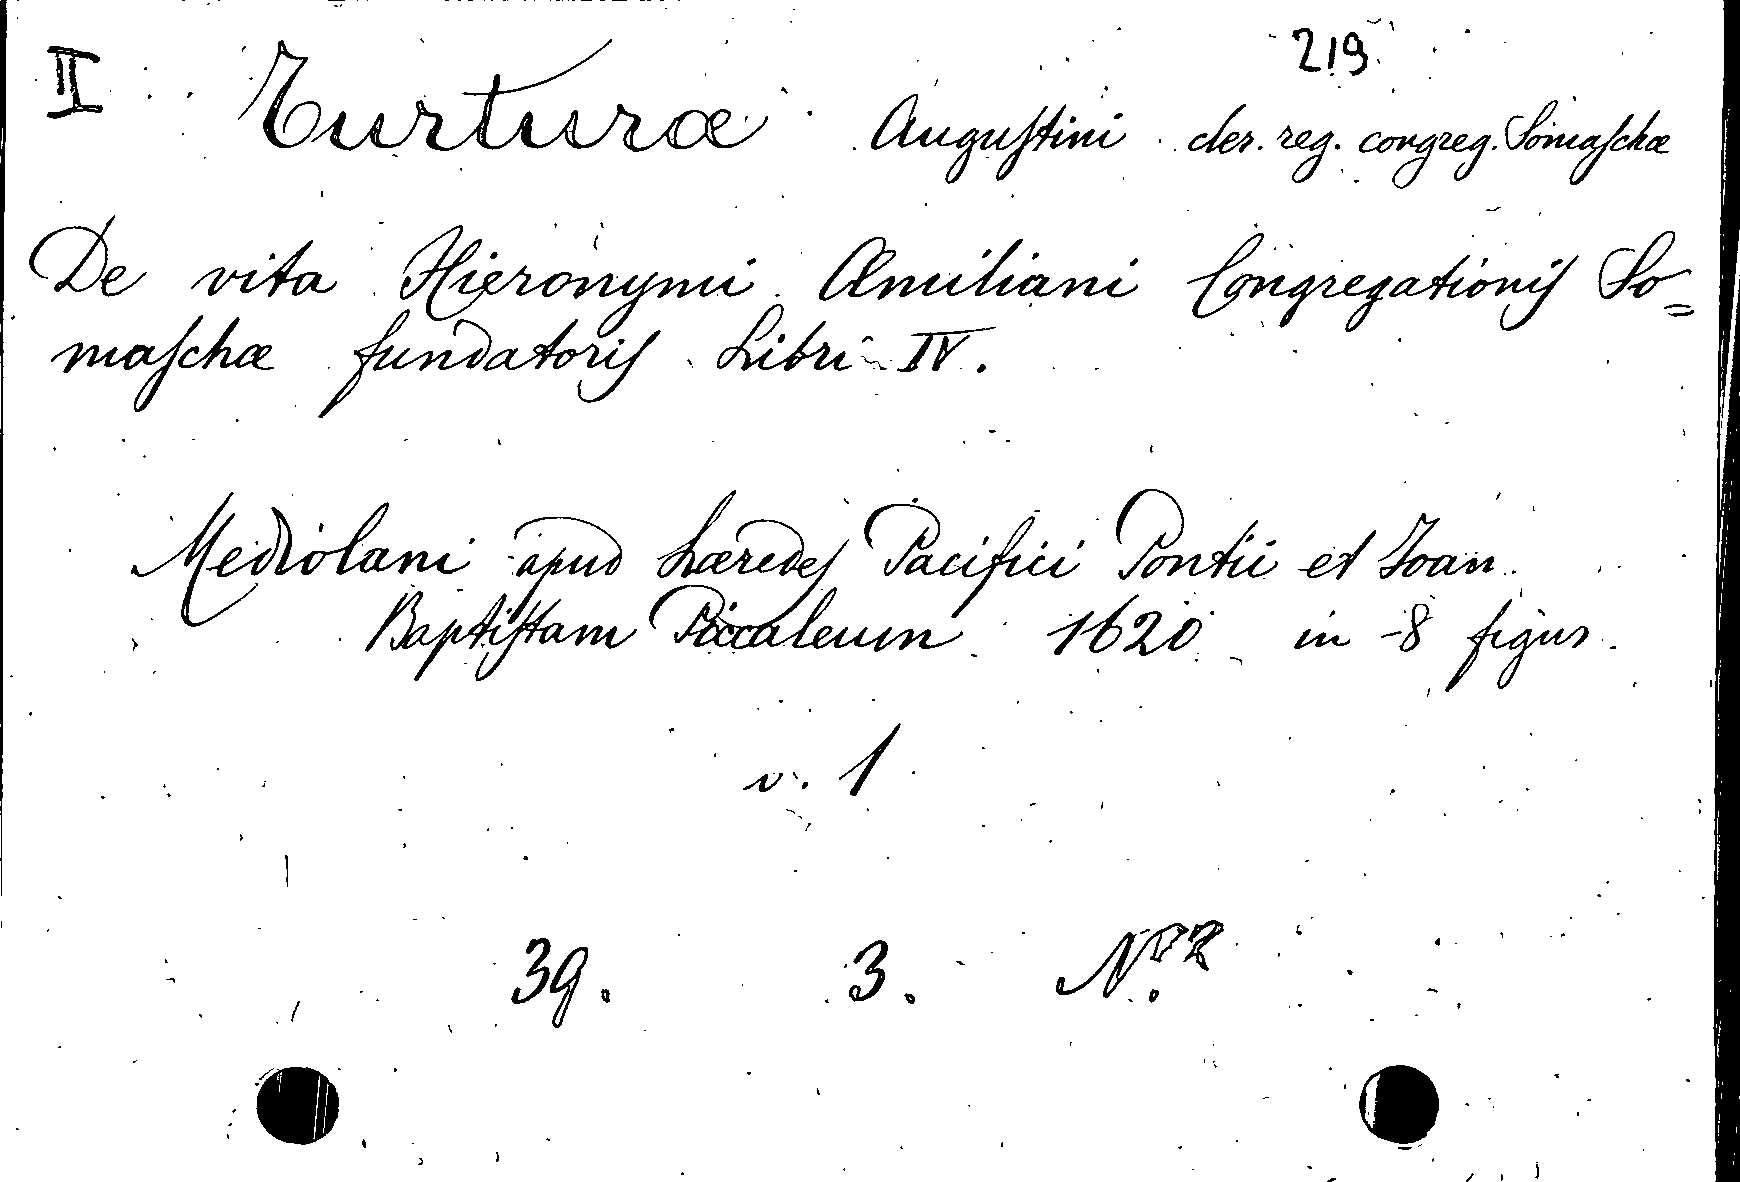 219
II Turturæ Augustini cler. reg. congreg. Somaschæ
De vita Hieronymi Æmiliani Congregationis So=
maschæ fundatoris Libri IV.
Mediolani apud hæredes Pacifici Pontii et Joan.
Baptistam Piccaleum 1620 in-8 figur.
v. 1
39. 3. N.º 2